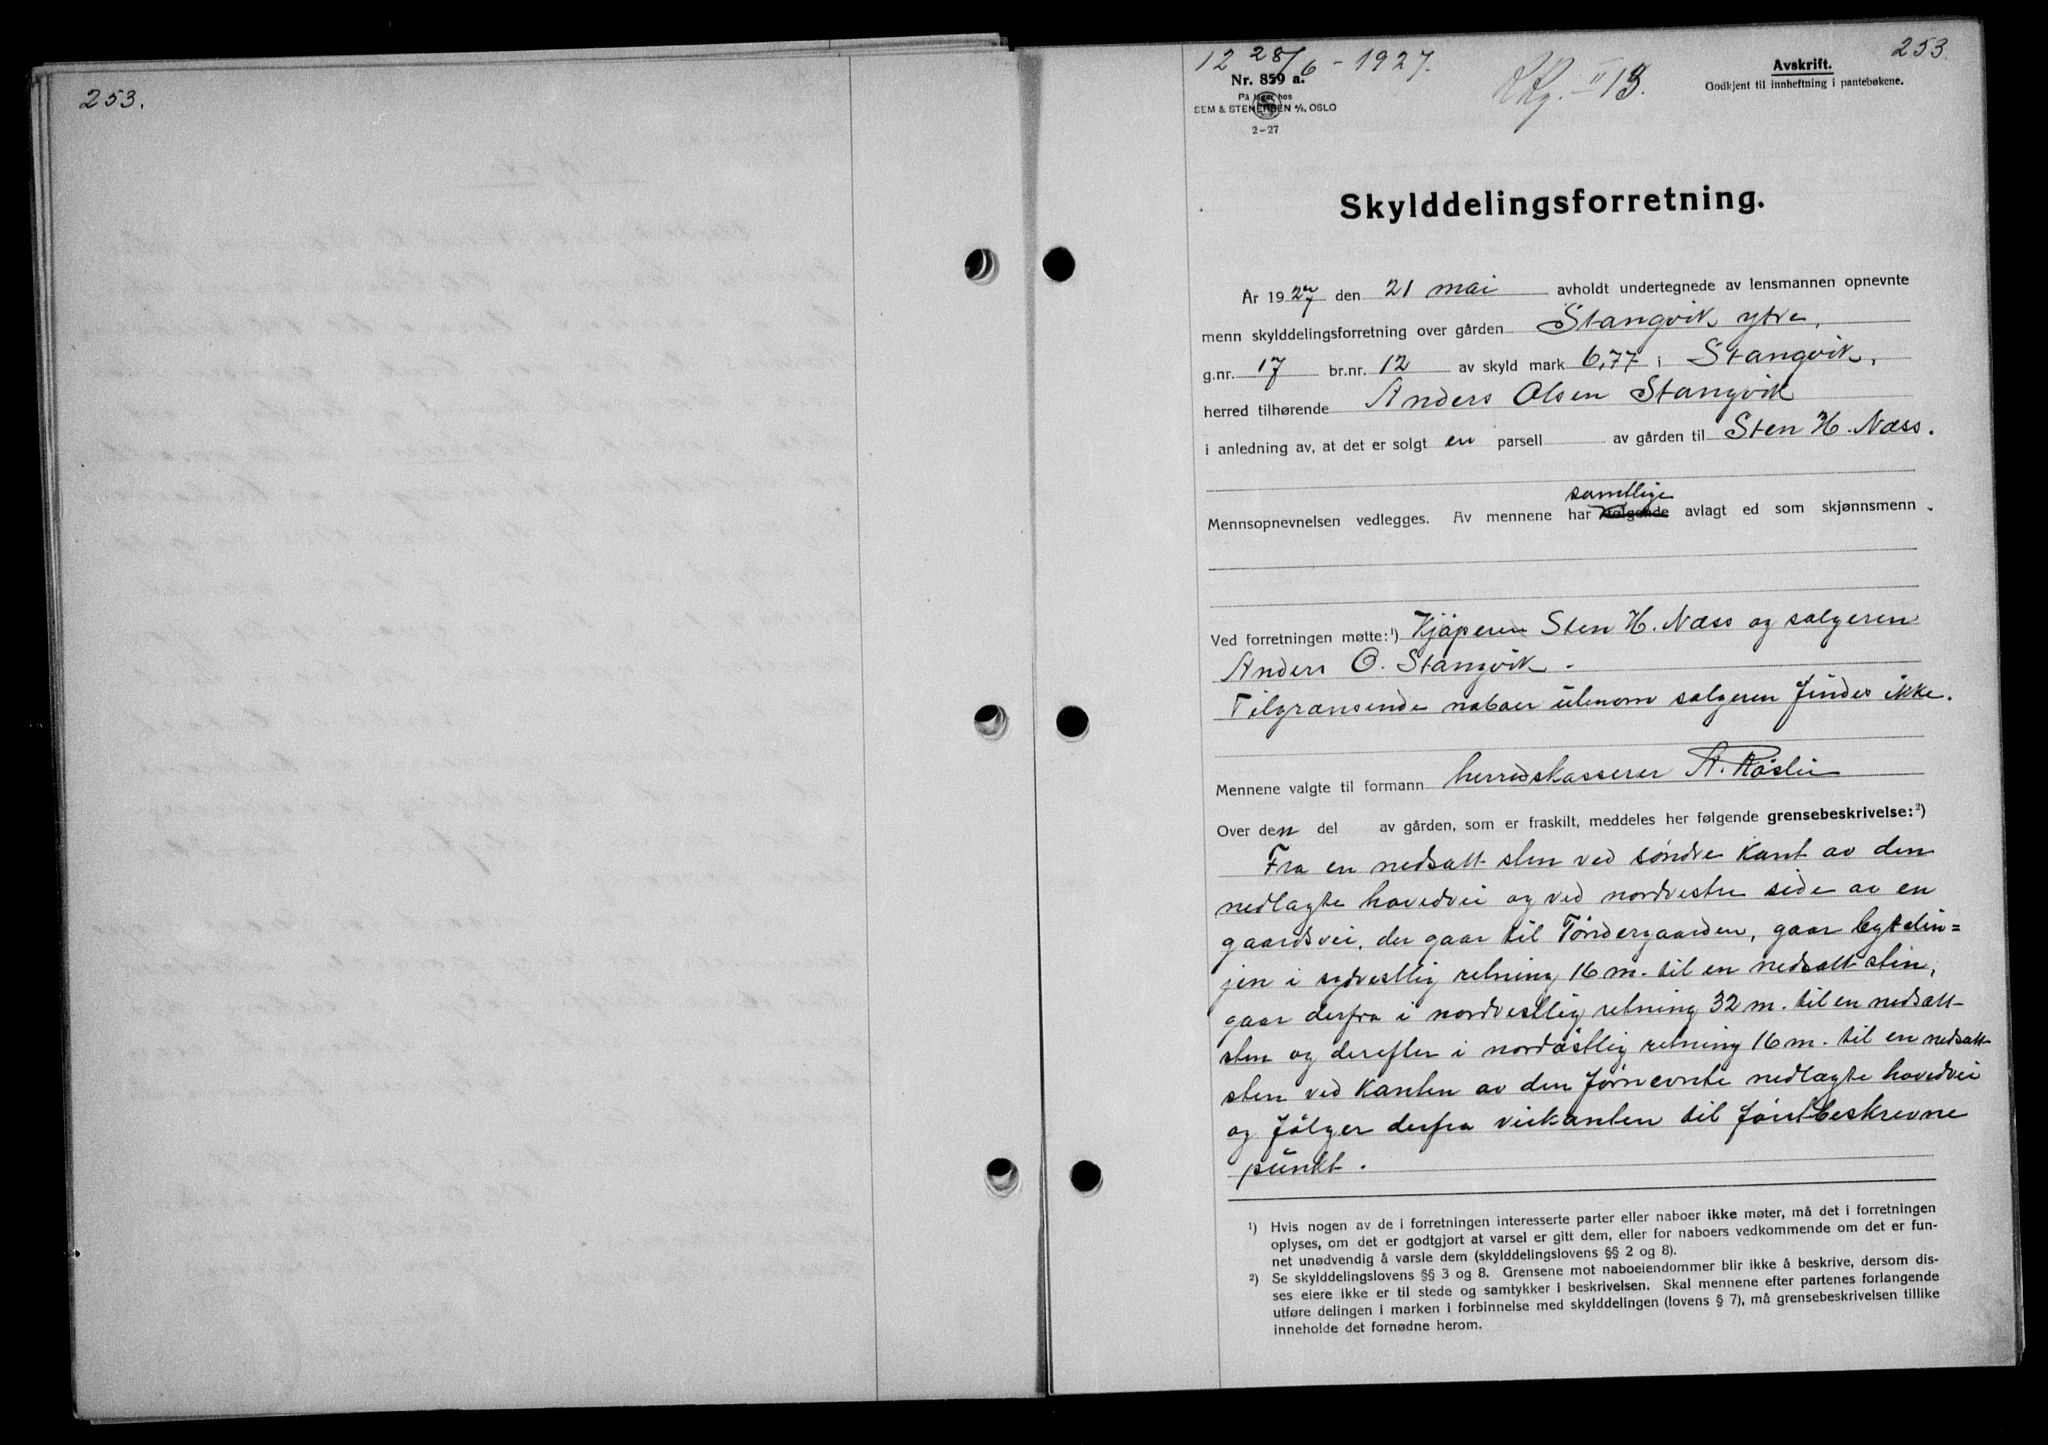 253.
12 28/6 - 1927.
253
Nr. 859 a.
På lager hos
SEM & STENERSEN A/S, OSLO
2-27
II 13.
Avskrift.
Godkjent til innheftning i pantebøkene.
Skylddelingsforretning.
År 1927 den 21 mai avholdt undertegnede av lensmannen opnevnte
menn skylddelingsforretning over gården Stangvik ytre,
g.nr. 17 br.nr. 12 av skyld mark 6,77 i Stangvik,
herred tilhørende Anders Olsen Stangvik
i anledning av, at det er solgt en parsell av gården til Sten H. Næss.
samtlige
Mennsopnevnelsen vedlegges. Av mennene har følgende avlagt ed som skjønnsmenn.
Ved forretningen møtte:¹) Kjøperen Sten H. Næss og sælgeren
Anders O. Stangvik.
Tilgrænsende naboer utenom sælgeren findes ikke.
Mennene valgte til formann herredskasserer A. Røslii
Over den del av gården, som er fraskilt, meddeles her følgende grensebeskrivelse:²)
Fra en nedsatt sten ved søndre kant av den
nedlagte hovedvei og ved nordvestre side av en
gaardsvei, der gaar til Tøndergaarden, gaar bytelin=
jen i sydvestlig retning 16 m. til en nedsatt sten,
gaar derfra i nordvestlig retning 32 m. til en nedsatt
sten og derefter i nordøstlig retning 16 m. til en nedsatt
sten ved kanten av den førnevnte nedlagte hovedvei
og følger derfra veikanten til førstbeskrevne
punkt.
¹) Hvis nogen av de i forretningen interesserte parter eller naboer ikke møter, må det i forretningen
oplyses, om det er godtgjort at varsel er gitt dem, eller for naboers vedkommende om det er fun-
net unødvendig å varsle dem (skylddelingslovens §§ 2 og 8).
²) Se skylddelingslovens §§ 3 og 8. Grensene mot naboeiendommer blir ikke å beskrive, dersom dis-
ses eiere ikke er til stede og samtykker i beskrivelsen. Skal mennene efter partenes forlangende
utføre delingen i marken i forbinnelse med skylddelingen (lovens § 7), må grensebeskrivelsen tillike
inneholde det fornødne herom.